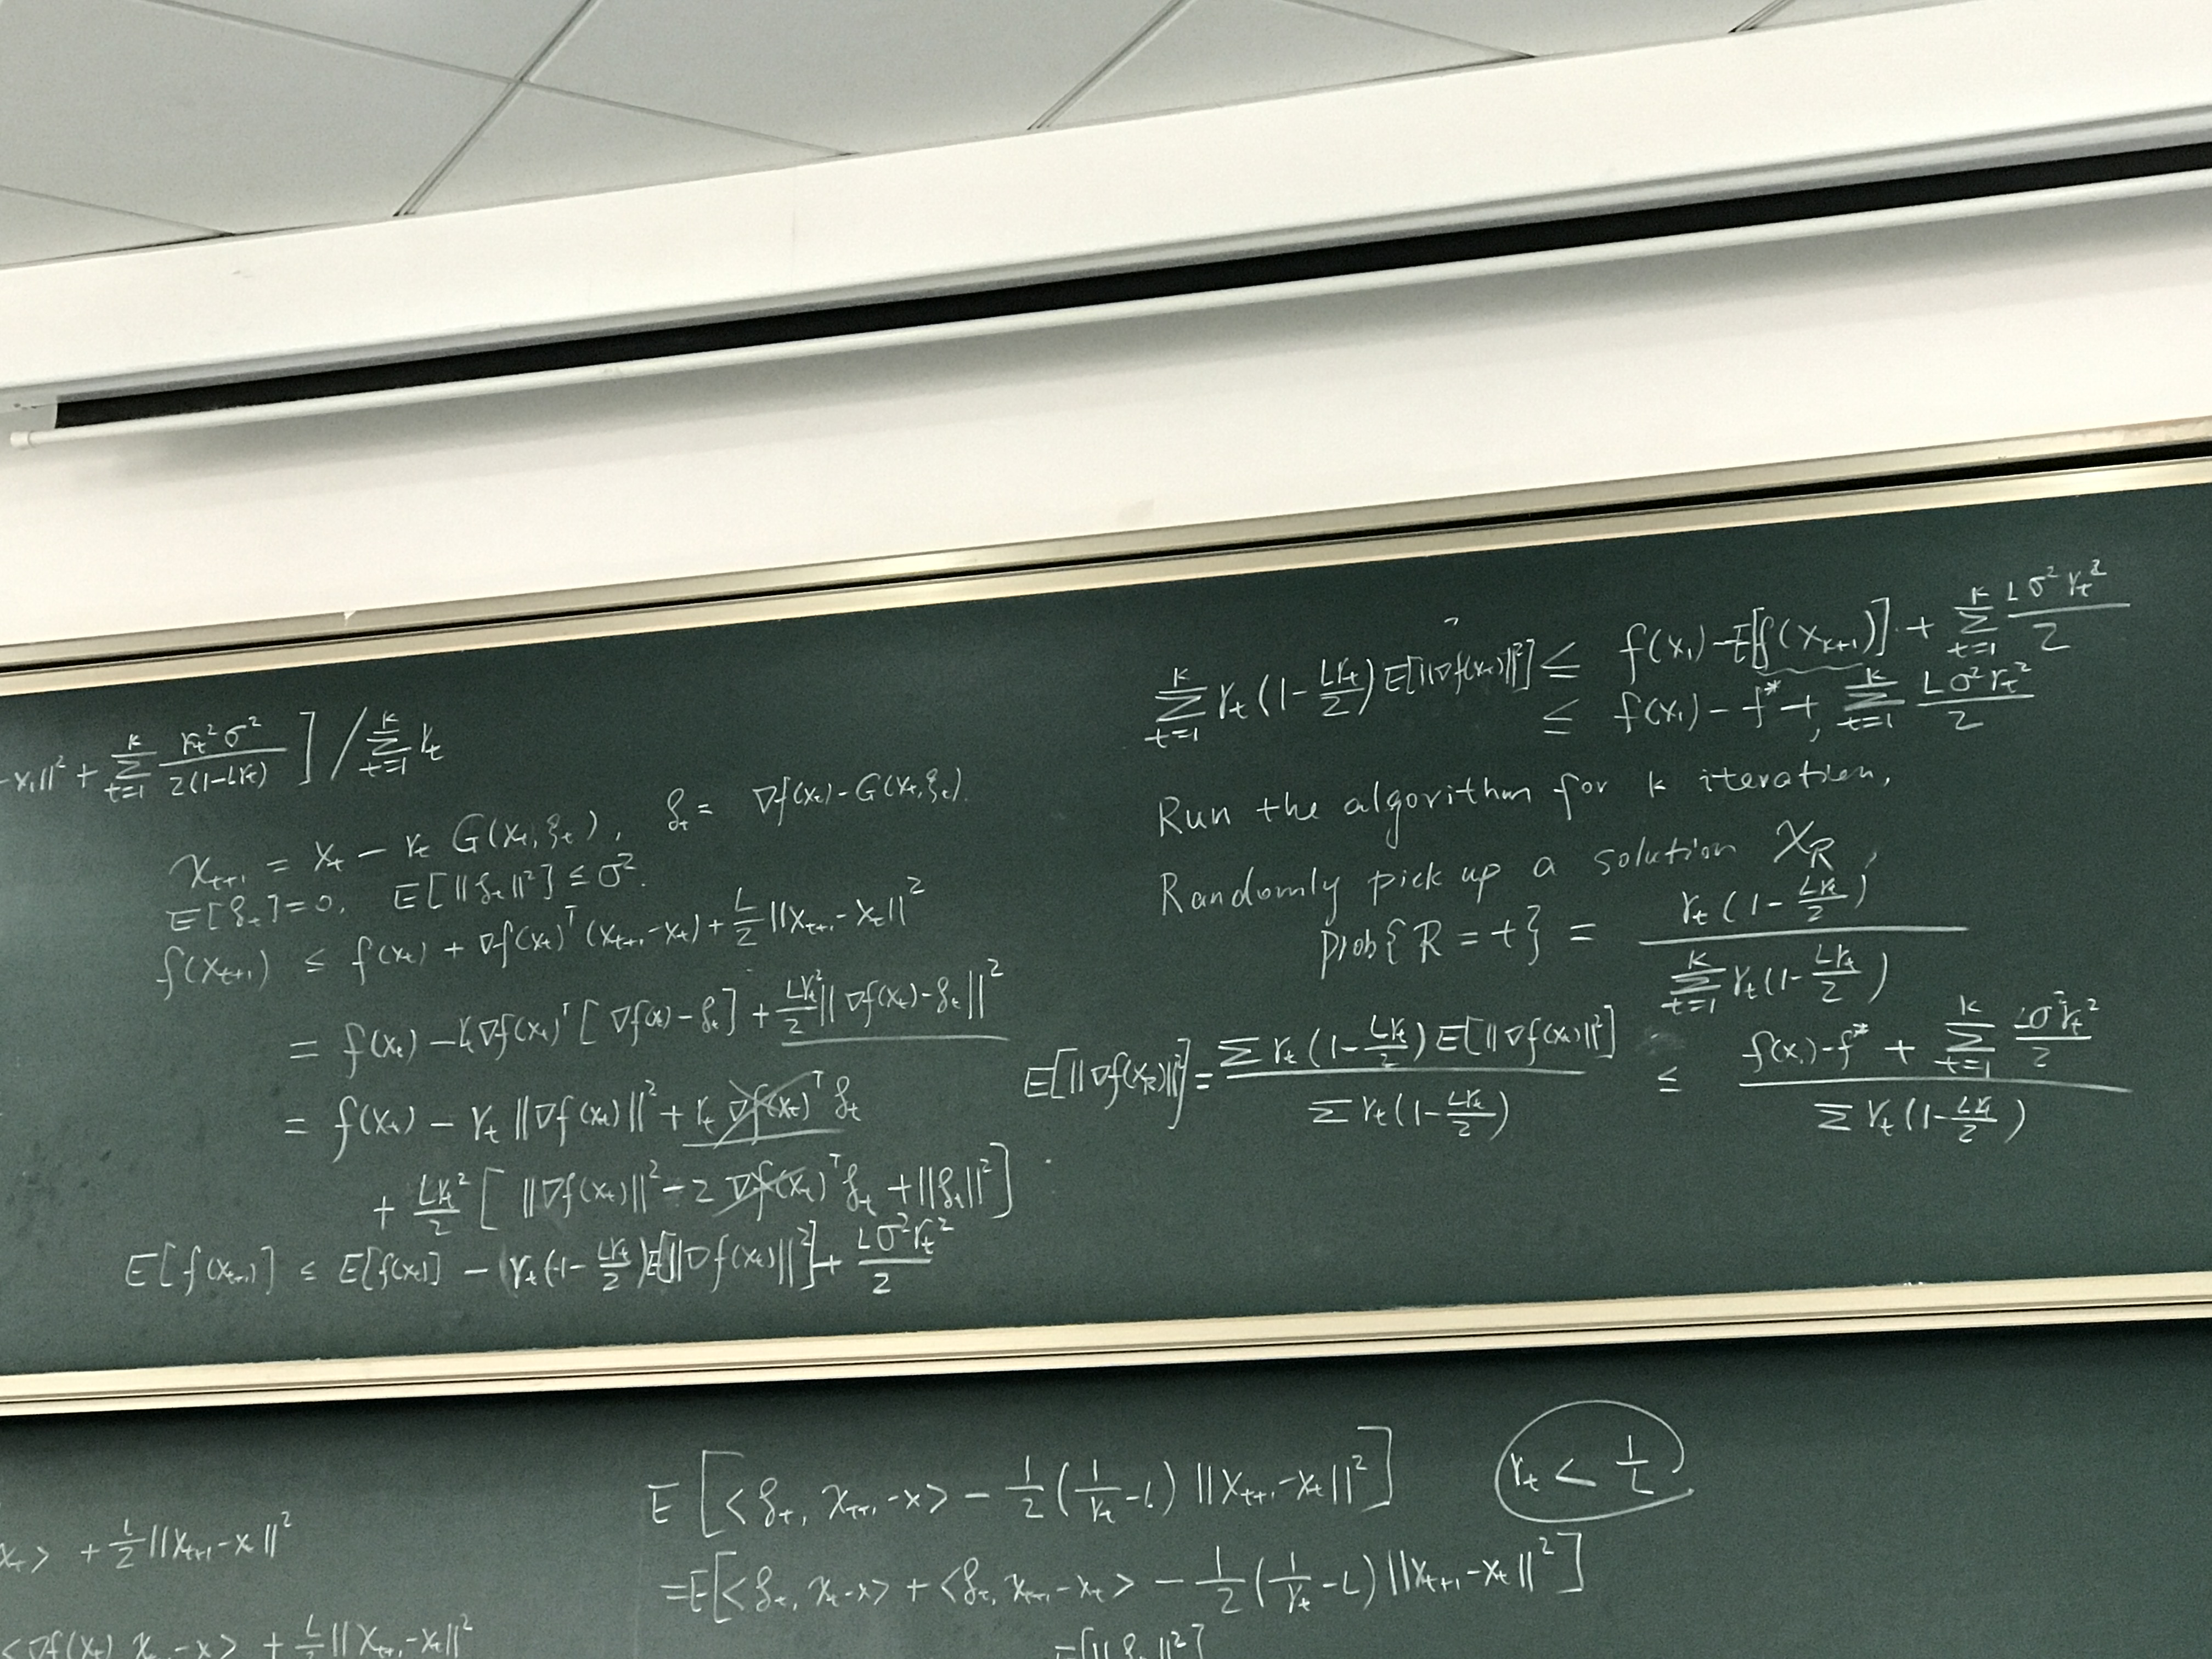 -x₁||² + Σ_{t=1}^{k} γₜ²σ² / 2(1-Lγₜ) ] / Σ_{t=1}^{k} γₜ
xₜ₊₁ = xₜ - γₜ G(xₜ, ξₜ), δₜ = ∇f(xₜ) - G(xₜ, ξₜ).
E[δₜ]=0, E[||δₜ||²] ≤ σ².
f(xₜ₊₁) ≤ f(xₜ) + ∇f(xₜ)ᵀ(xₜ₊₁-xₜ) + L/2 ||xₜ₊₁-xₜ||²
= f(xₜ) - γₜ∇f(xₜ)ᵀ[∇f(x)-δₜ] + Lγₜ²/2 ||∇f(xₜ)-δₜ||²
= f(xₜ) - γₜ ||∇f(xₜ)||² + γₜ ∇f(xₜ)ᵀ δₜ
+ Lγₜ²/2 [ ||∇f(xₜ)||² - 2 ∇f(xₜ)ᵀ δₜ + ||δₜ||² ]
E[f(xₜ₊₁)] ≤ E[f(xₜ)] - γₜ(1 - Lγₜ/2) E[||∇f(xₜ)||²] + Lσ²γₜ²/2
Σ_{t=1}^{k} γₜ (1 - Lγₜ/2) E[||∇f(xₜ)||²] ≤ f(x₁) - E[f(x_{k+1})] + Σ_{t=1}^{k} Lσ²γₜ²/2
≤ f(x₁) - f* + Σ_{t=1}^{k} Lσ²γₜ²/2
Run the algorithm for k iteration,
Randomly pick up a solution X_R,
prob{R = t} = γₜ(1 - Lγₜ/2) / Σ_{t=1}^{k} γₜ(1 - Lγₜ/2)
E[||∇f(x_R)||²] = Σ γₜ(1 - Lγₜ/2) E[||∇f(xₜ)||²] / Σ γₜ(1 - Lγₜ/2) ≤ f(x₁) - f* + Σ_{t=1}^{k} Lσ²γₜ²/2 / Σ γₜ(1 - Lγₜ/2)
xₜ> + L/2 ||xₜ₊₁-xₜ||²
<∇f(xₜ), xₜ-x> + L/2 ||xₜ₊₁-xₜ||²
E[<δₜ, xₜ₊₁-x> - 1/2 (1/γₜ - L) ||xₜ₊₁-xₜ||²]
γₜ < 1/L
=E[<δₜ, xₜ-x> + <δₜ, xₜ₊₁-xₜ> - 1/2 (1/γₜ - L) ||xₜ₊₁-xₜ||²]
E[||δₜ||²]